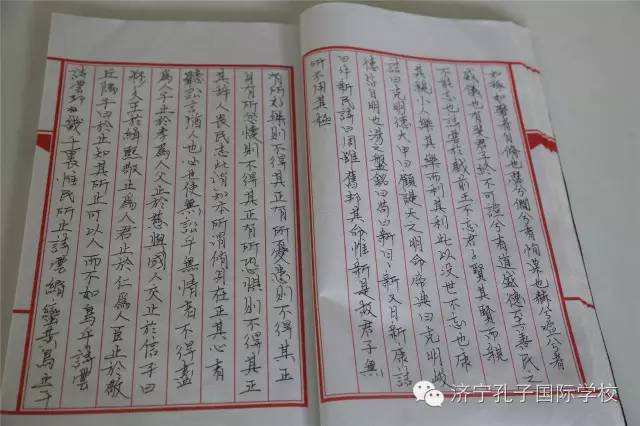 如琢如磨者自脩也瑟兮僩兮者恂栗也赫兮喧兮者
威儀也有斐君子終不可諠兮者道盛德至善民之
不能忘也詩云於戲前王不忘君子賢其賢而親
其親小人樂其樂而利其利此以没世不忘也康
誥曰克明德大甲曰顧諟天之明命帝典曰克明峻
德皆自明也湯之盤銘曰苟日新日日新又日新康誥
曰作新民詩曰周雖舊邦其命惟新是故君子無
所不用其極
詩雲邦畿千里惟民所止詩雲緡蠻黃鳥止于
丘隅子曰於止知其所止可以人而不如鳥乎詩雲
穆穆文王於緝熙敬止為人君止於仁為人臣止於敬
為人子止於孝為人父止於慈與國人交止於信子曰
聽訟吾猶人也必也使無訟乎無情者不得盡
其辭大畏民志此謂知本所謂脩身在正其心者
身有所忿懥則不得其正有所恐懼則不得其正
有所好樂則不得其正有所憂患則不得其正
济宁孔子国际学校